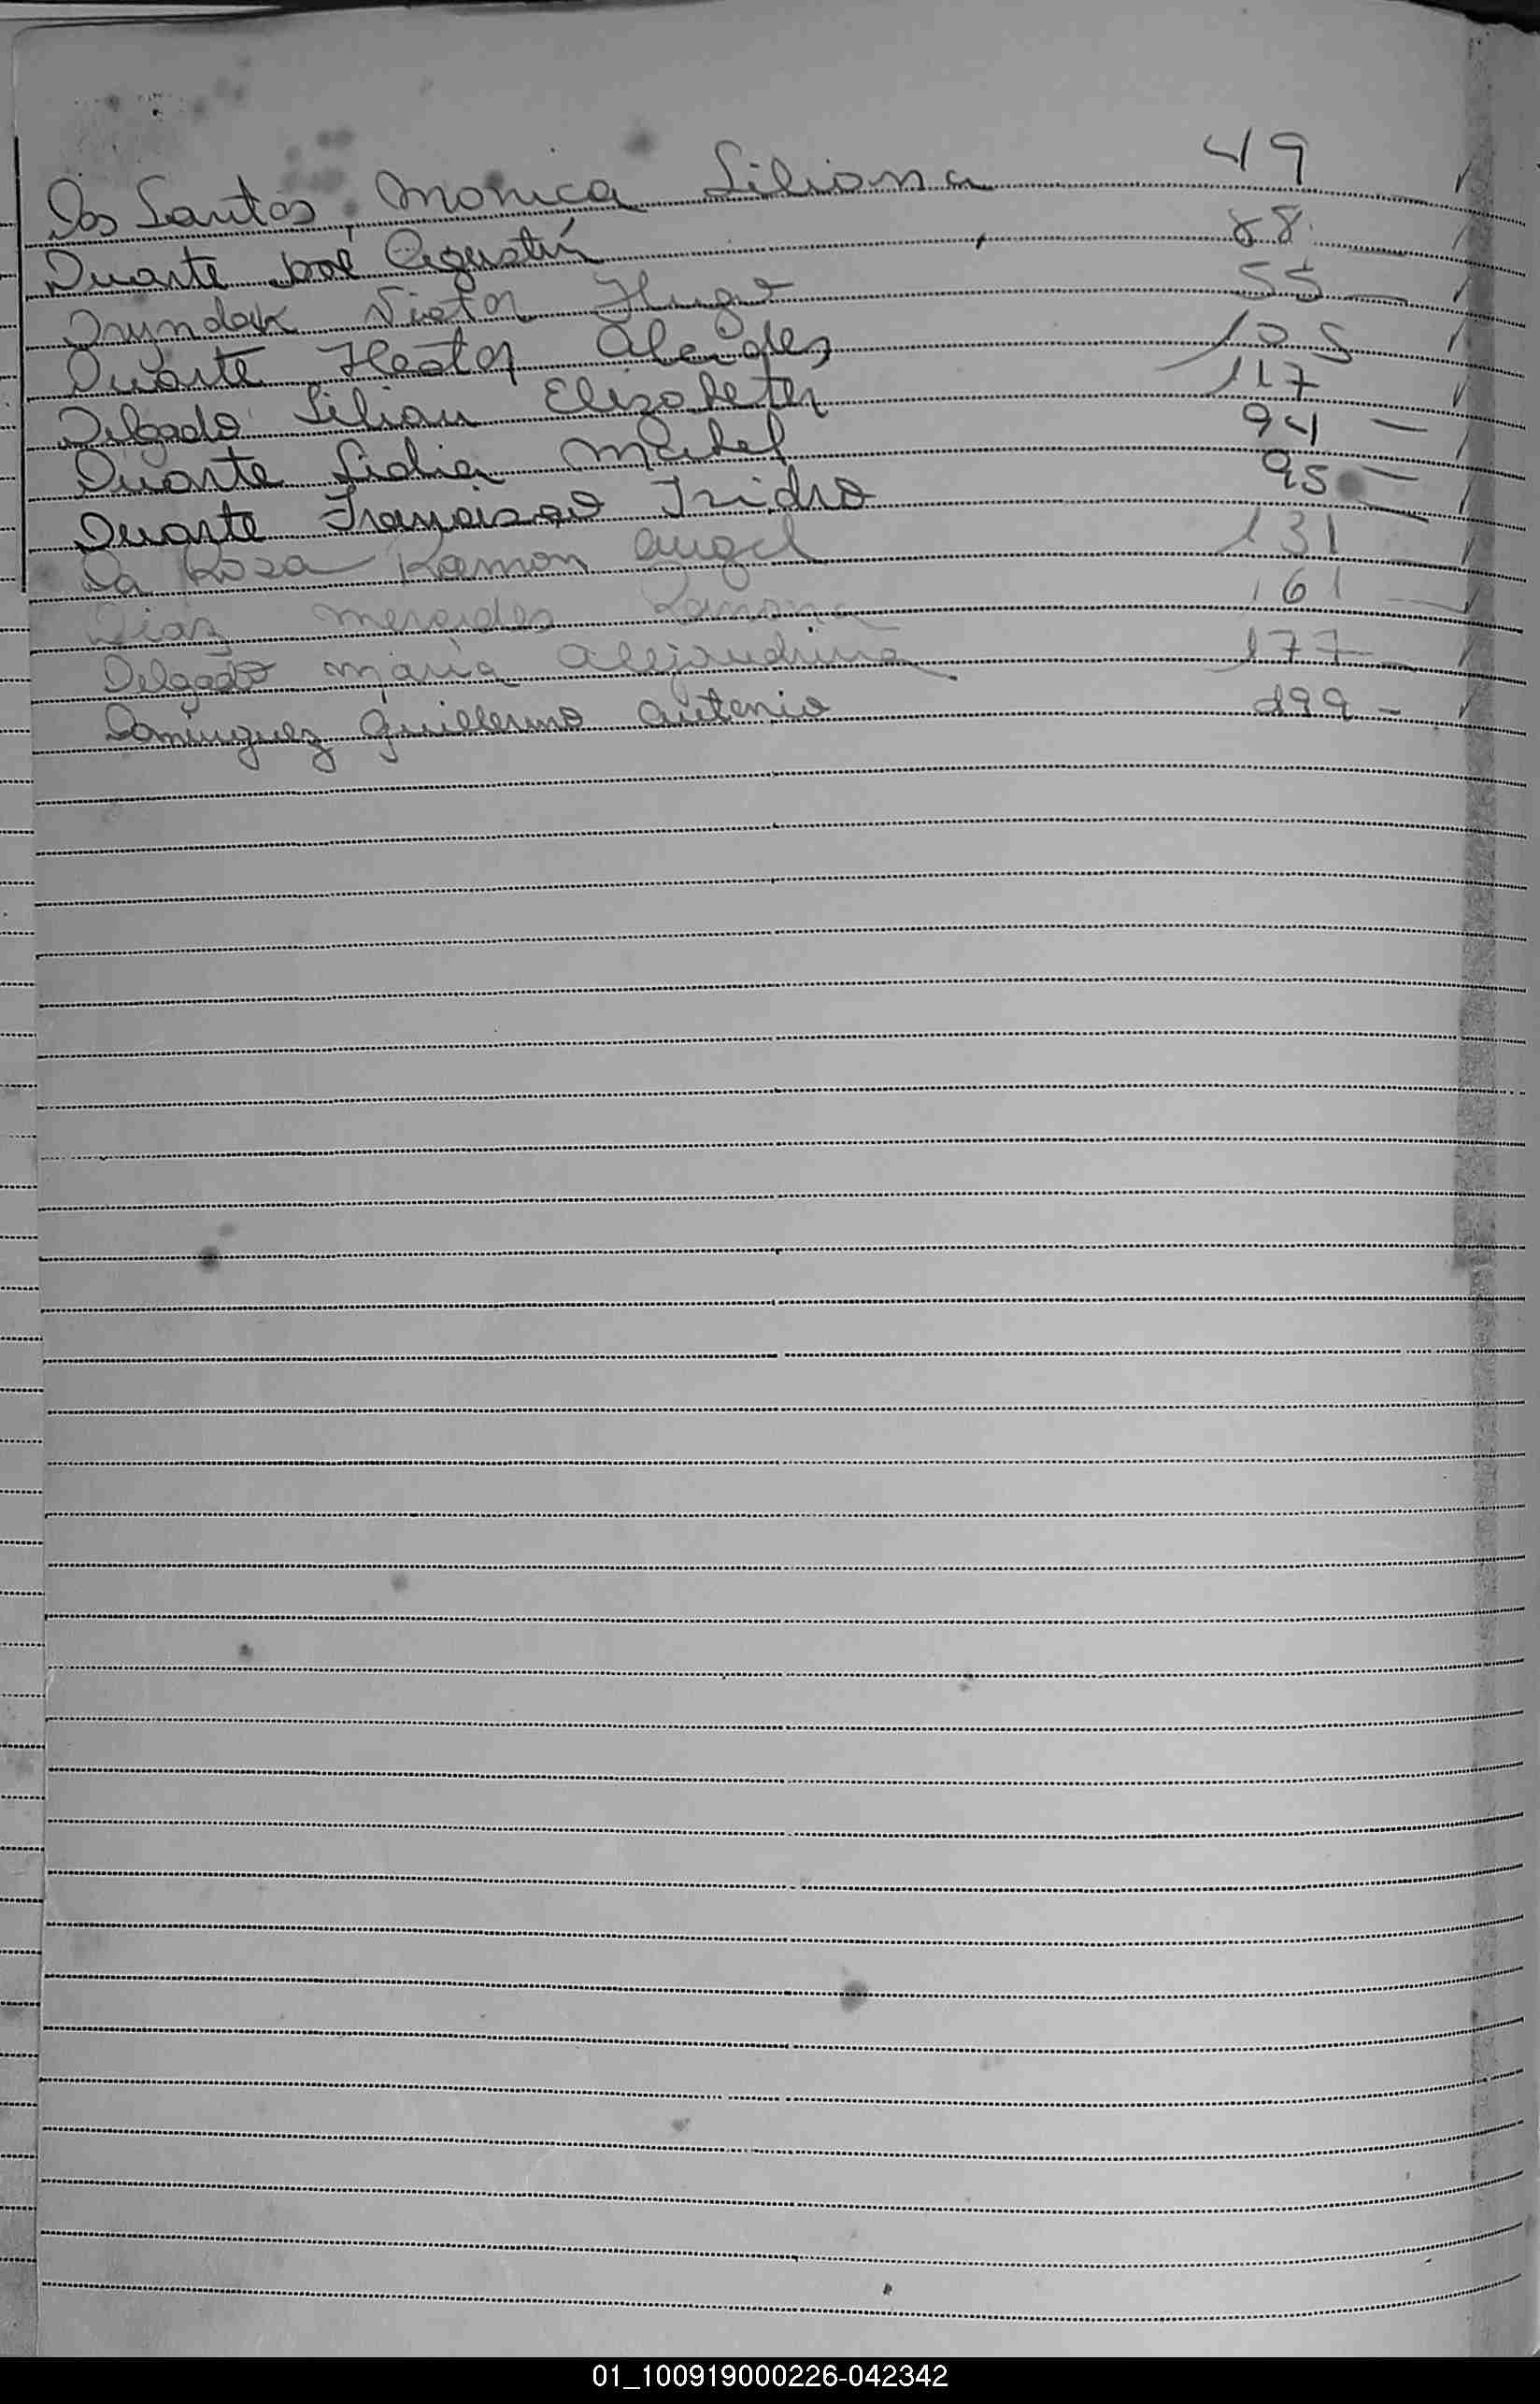 Dos Santos, Monica Liliana 49
Duarte José Agustín 88
Dryndak Victor Hugo 55
Duarte Hector Alcides 105
Delgado Lilian Elizabeth 117
Duarte Lidia Mabel 94
Duarte Francisco Izidro 95
Da Roza Ramon Angel 131
Diaz Mercedes Ramona 161
Delgado Maria Alejandrina 177
Dominguez Guillermo Antonio 199
01_100919000226-042342